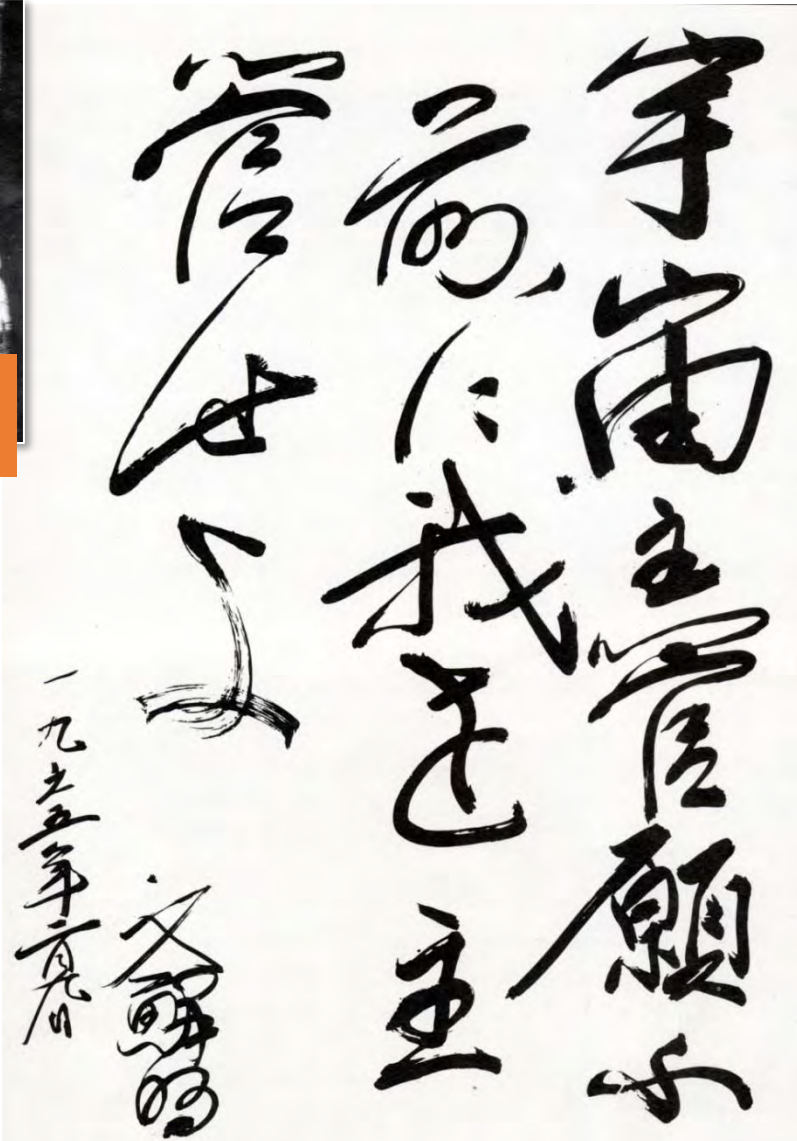 宇宙主管願ふ
前に我を主
管せよ
文鮮明
一九六五年二月九日